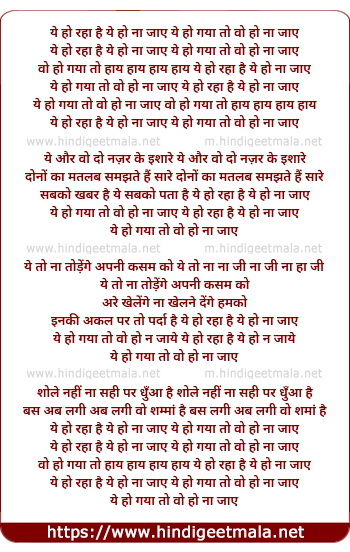 ये हो रहा है ये हो ना जाए ये हो गया तो वो हो ना जाए
ये हो रहा है ये हो ना जाए ये हो गया तो वो हो ना जाए
वो हो गया तो हाय हाय हाय हाय ये हो रहा है ये हो ना जाए
ये हो गया तो वो हो ना जाए ये हो रहा है ये हो ना जाए
ये हो गया तो वो हो ना जाए वो हो गया तो हाय हाय हाय हाय
ये हो रहा है ये हो ना जाए ये हो गया तो वो हो ना जाए
www.hindigeetmala.net m.hindigeetmala.net
ये और वो दो नज़र के इशारे ये और वो दो नज़र के इशारे
दोनों का मतलब समझते हैं सारे दोनों का मतलब समझते हैं सारे
सबको खबर है ये सबको पता है ये हो रहा है ये हो ना जाए
ये हो गया तो वो हो ना जाए ये हो रहा है ये हो ना जाए
ये हो गया तो वो हो ना जाए
www.hindigeetmala.net m.hindigeetmala.net
ये तो ना तोड़ेंगे अपनी कसम को ये तो ना ना जी ना जी ना हा जी
ये तो ना तोड़ेंगे अपनी कसम को
अरे खेलेंगे ना खेलने देंगे हमको
इनकी अकल पर तो पर्दा है ये हो रहा है ये हो ना जाए
ये हो गया तो वो हो न जाये ये हो रहा है ये हो न जाये
ये हो गया तो वो हो ना जाए
www.hindigeetmala.net m.hindigeetmala.net
शोले नहीं ना सही पर धुँआ है शोले नहीं ना सही पर धुँआ है
बस अब लगी अब लगी वो शम्मां है बस लगी अब लगी वो शमां है
ये हो रहा है ये हो ना जाए ये हो गया तो वो हो ना जाए
ये हो रहा है ये हो ना जाए ये हो गया तो वो हो ना जाए
वो हो गया तो हाय हाय हाय हाय ये हो रहा है ये हो ना जाए
ये हो रहा है ये हो ना जाए ये हो गया तो वो हो ना जाए
ये हो गया तो वो हो ना जाए
https://www.hindigeetmala.net